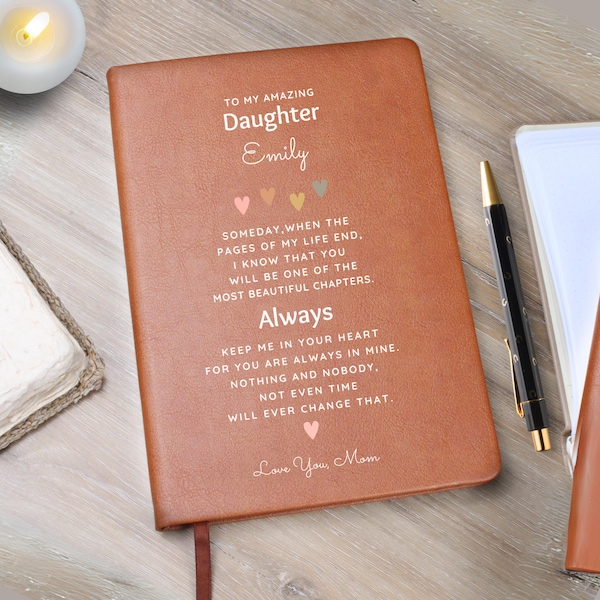 TO MY AMAZING
Daughter
Emily
SOMEDAY,WHEN THE
PAGES OF MY LIFE END,
I KNOW THAT YOU
WILL BE ONE OF THE
MOST BEAUTIFUL CHAPTERS.
Always
KEEP ME IN YOUR HEART
FOR YOU ARE ALWAYS IN MINE.
NOTHING AND NOBODY,
NOT EVEN TIME
WILL EVER CHANGE THAT.
Love You, Mom